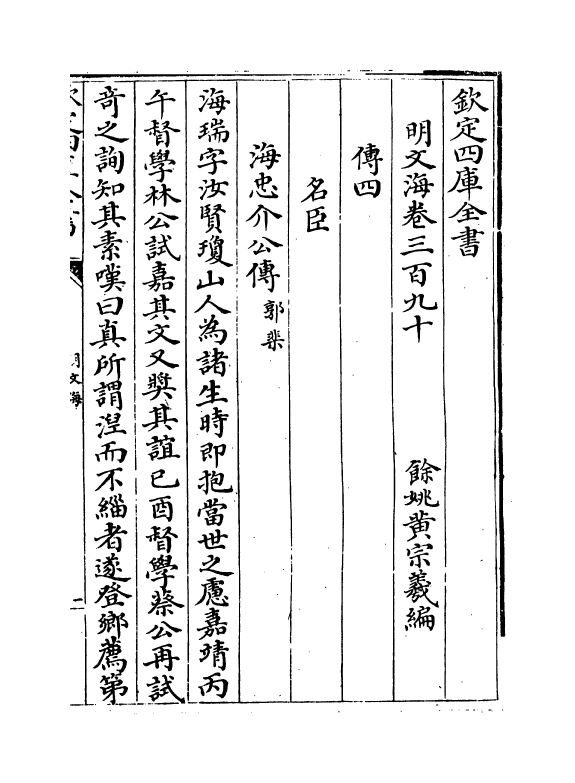 欽定四庫全書
明文海卷三百九十
餘姚黃宗羲編
傳四
名臣
海忠介公傳 郭棐
海瑞字汝賢瓊山人為諸生時即抱當世之慮嘉靖丙
午督學林公試嘉其文又奬其誼已酉督學蔡公再試
竒之詢知其素嘆曰真所謂湼而不緇者遂登鄉薦第
明文海